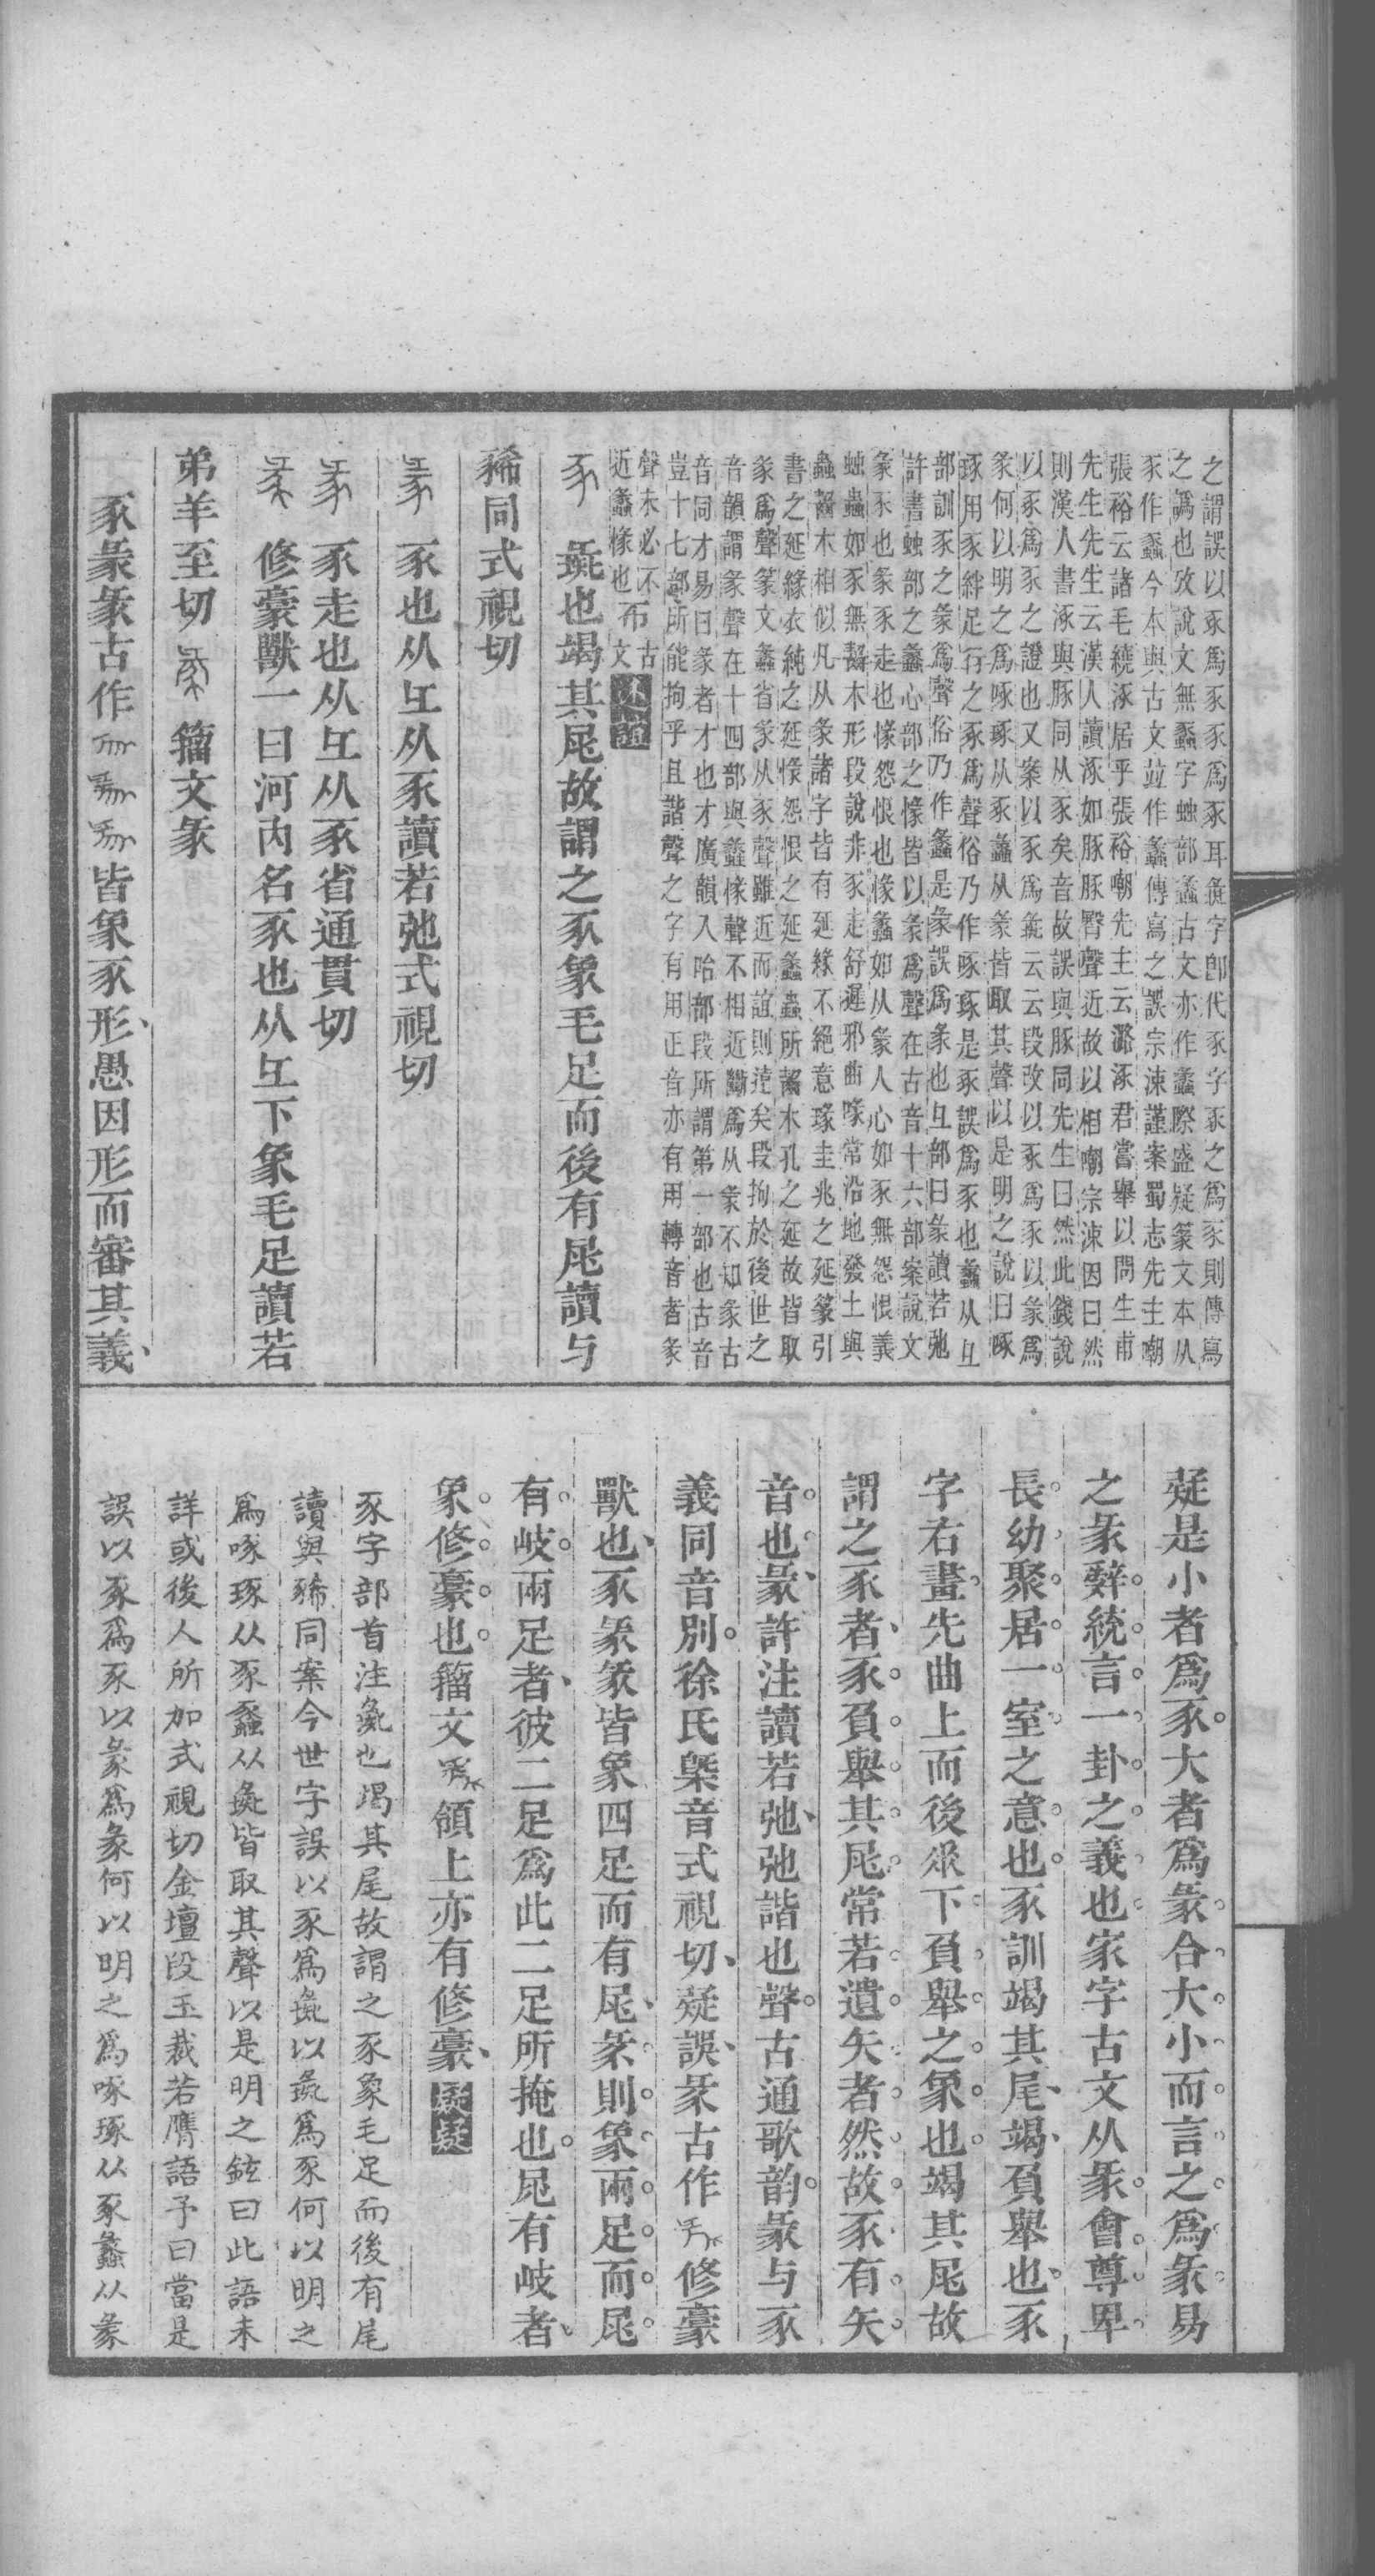 之謂誤以豕爲豕豕爲豕耳彘字卽代豕字豕之爲豕則傳寫
之譌也攷說文無蠡字䖵部蠡古文亦作蠡際盛疑篆文本从
豕作蠡今本與古文竝作蠡傳寫之誤宗涑謹案蜀志先主嘲
張裕云諸毛繞涿居乎張裕嘲先主云潞涿君嘗舉以問生甫
先生先生云漢人讀涿如豚豚臀聲近故以相嘲宗涑因曰然
則漢人書涿與豚同从豕矣音故誤與豚同先生曰然此錢說
以豕爲豕之證也又案以豕爲彘云云段改以豕爲豕以彖爲
彖何以明之爲啄琢从豕蠡从彖皆取其聲以是明之說曰啄
琢用豕絆足行之豕爲聲俗乃作啄琢是豕誤爲豕也蠡从彑
部訓豕之彖爲聲俗乃作蠡是彖誤爲彖也彑部曰彖讀若弛
許書䖵部之蠡心部之㥟皆以彖爲聲在古音十六部案說文
彖豕也彖豕走也㥟怨恨也㥟蠡如从彖人心如豕無怨恨義
䖵蟲如豕無齧木形段說非豕走舒遲邪曲喙常沿地發土與
蟲齧木相似凡从彖諸字皆有延緣不絕意瑑圭兆之延篆引
書之延緣衣純之延㥟怨恨之延蠡蟲所齧木孔之延故皆取
彖爲聲篆文蠡省彖从豕聲雖近而誼則違矣段拘於後世之
音韻謂彖聲在十四部與蠡㥟聲不相近斷爲从彖不知彖古
音同才易曰彖者才也才廣韻入咍部段所謂第一部也古音
豈十七部所能拘乎且諧聲之字有用正音亦有用轉音者彖
聲未必不古
近蠡㥟也布文
豕　彘也竭其尾故謂之豕象毛足而後有尾讀与
豨同式視切
彖　豕也从彑从豕讀若弛式視切
彖　豕走也从彑从豕省通貫切
㣇　修豪獸一曰河內名豕也从彑下象毛足讀若
弟羊至切　籀文㣇
豕彖㣇古作　皆象豕形愚因形而審其義
疑是小者爲豕大者爲彖合大小而言之爲彖易
之彖辭統言一卦之義也家字古文从㣇會尊卑
長幼聚居一室之意也豕訓竭其尾竭負舉也豕
字右畫先曲上而後下負舉之象也竭其尾故
謂之豕者豕負舉其尾常若遺矢者然故豕有矢
音也彖許注讀若弛弛諧也聲古通歌韵彖与豕
義同音別徐氏槩音式視切疑誤㣇古作　修豪
獸也豕彖㣇皆象四足而有尾㣇則象兩足而尾
有岐兩足者彼二足爲此二足所掩也尾有岐者
象修豪也籀文　領上亦有修豪
豕字部首注彘也竭其尾故謂之豕象毛足而後有尾
讀與豨同案今世字誤以豕爲彘以彘爲豕何以明之
爲啄琢从豕蠡从彘皆取其聲以是明之鉉曰此語未
詳或後人所加式視切金壇段玉裁若膺語予曰當是
誤以豕爲豕以彖爲彖何以明之爲啄琢从豕蠡从彖